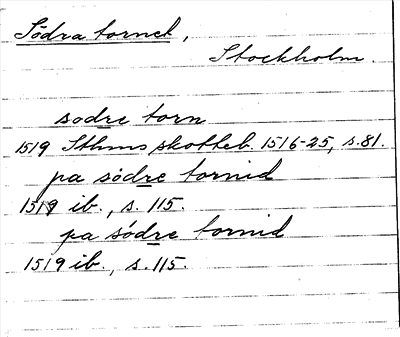 Södra tornet,
Stockholm.
sodre torn
1519 Sthms skotteb. 1516-25, s. 81.
pa södre tornid
1519 ib., s. 115.
pa södre tornid
1519 ib., s. 115.